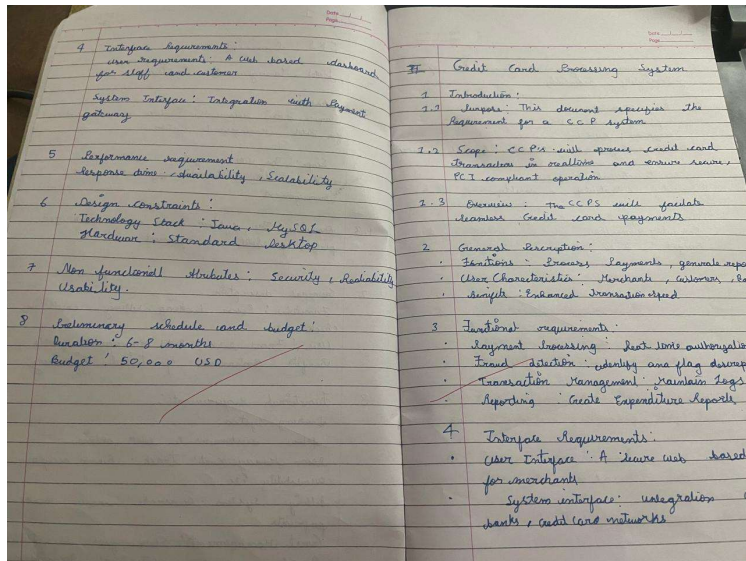 Date
Page
4 Interface Requirements:
User requirements: A web based dashboard
for staff and customer
System Interface: Integration with Payment
gateway
5 Performance requirement
Response time, Availability, Scalability
6 Design constraints:
Technology Stack: Java, MySQL
Hardware: Standard Desktop
7 Non functionall Atributes: Security, Realiability
Usability.
8 Preliminary schedule and budget:
Duration: 6-8 months
Budget: 50,000 USD
Date
Page
II Credit Card Processing System
1 Introduction:
1.1 Purpose: This document specifies the
Requirement for a CCP system
1.2 Scope: CCPS will process credit card
transactions in realtime and ensure secure,
PCI compliant operation
1.3 Overview: The CCPS will facilate
seamless credit card payments
2 General Description:
• Functions: Process Payments, generate repo
• User Charecteristics: Merchants, customers,
• Benifits: Enhanced transaction speed
3 Functional requirements:
• Payment Processing: Real time authorizatio
• Fraud detection: identify and flag
• Transaction Management: Maintain Logs
• Reporting: Create Expenditure Reports
4 Interface Requirements:
• User Interface: A secure web based
for merchants
• System interface: integration
banks, credit card networks